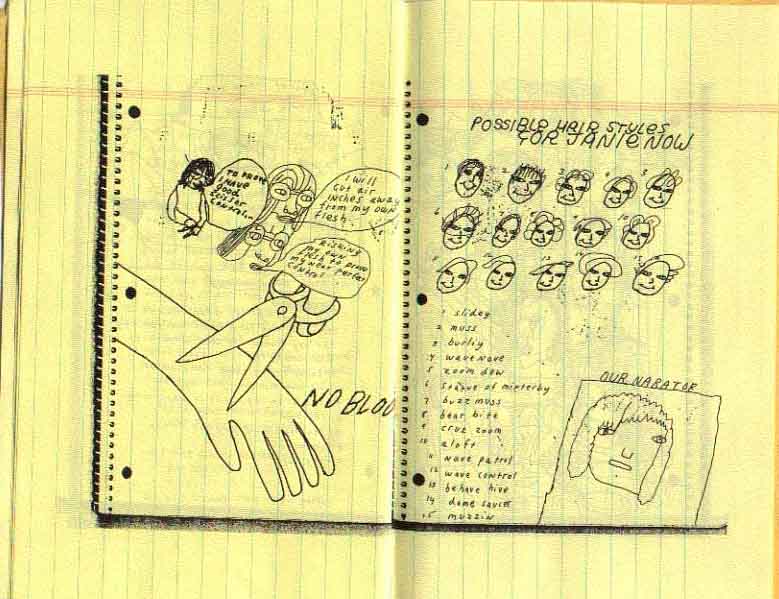 TO PROVE
I HAVE
good
scissor
control..
I WILL
CUT AIR
inches away
from my own
flesh.
RISKING
my own
flesh to prove
my near perfect
control
NO BLOO
POSSIBLE HAIR STYLES
FOR JANIE NOW
1 2 3 4 5
6 7 8 9 10
11 12 13 14 15
1 slidey
2 muss
3 burlly
4 wavenave
5 zoom dow
6 statue of mirterby
7 buzz muss
8 bear bite
9 cruz zoom
10 aloft
11 nave patrol
12 wave control
13 behave hive
14 dome saucer
15 muzzin
OUR NARATOR